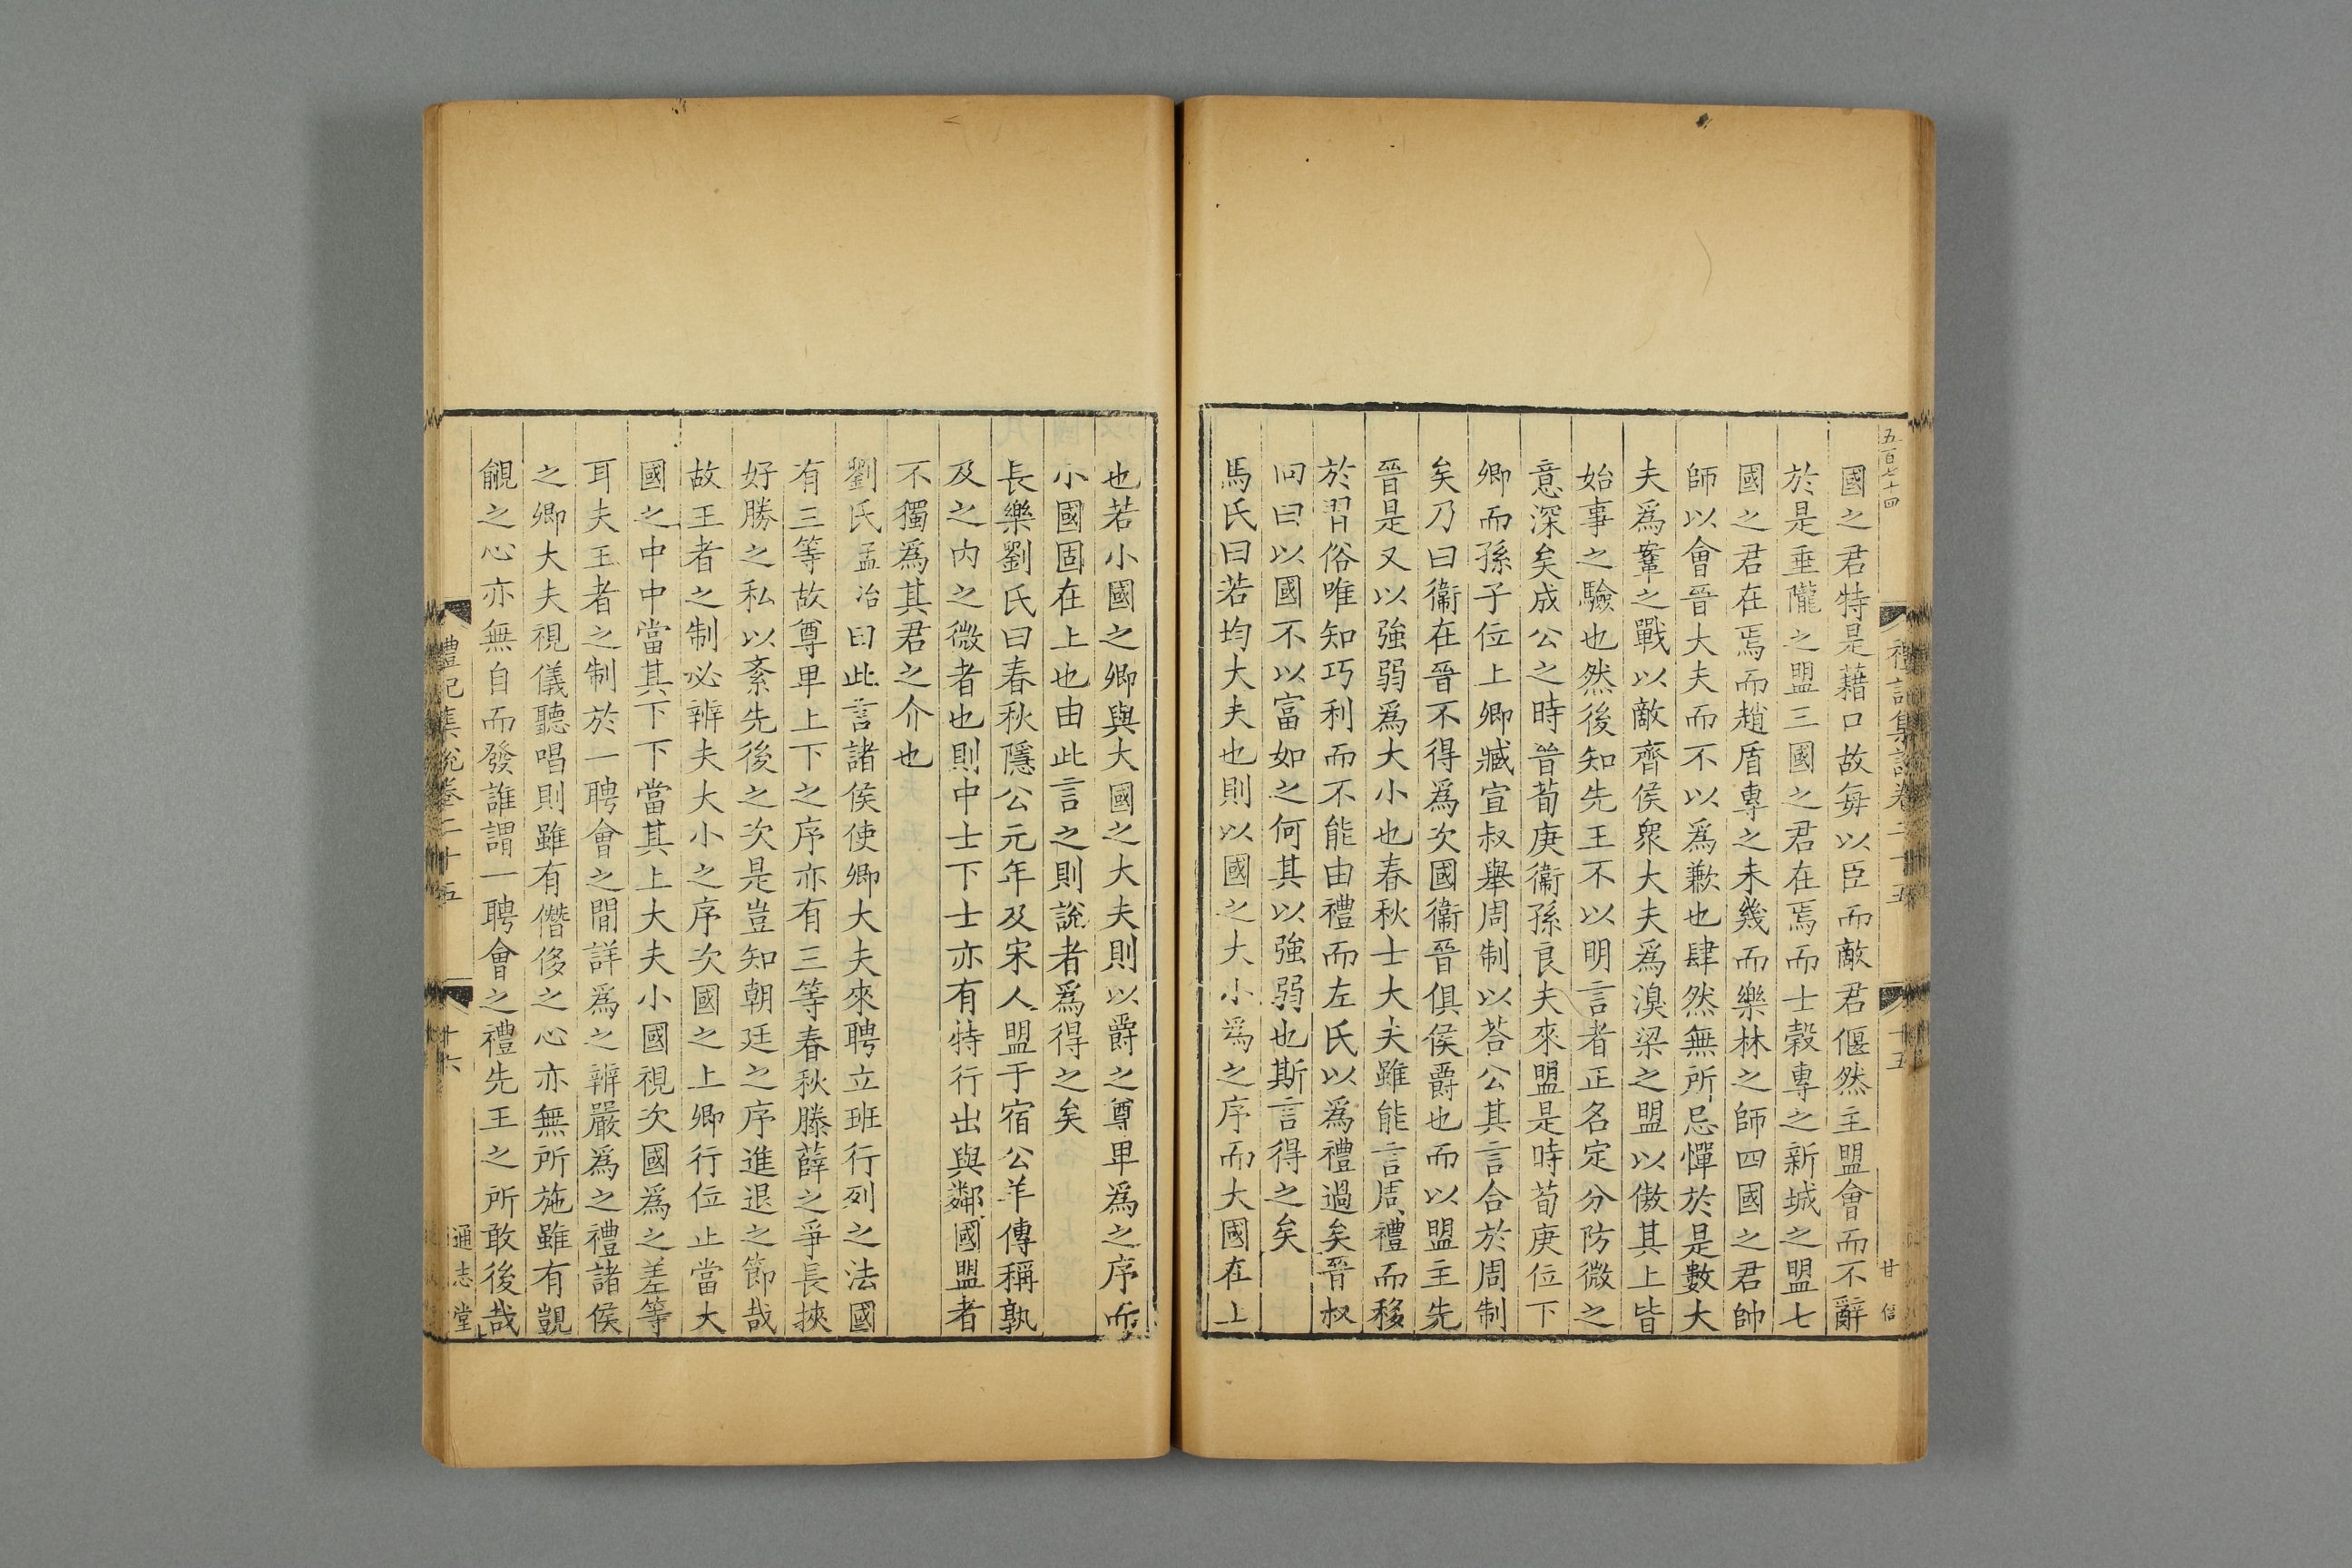 五百七十四
禮記集說卷二十五
十五
甘信
國之君特是藉口故每以臣而敵君偃然主盟會而不辭
於是垂隴之盟三國之君在焉而士縠專之新城之盟七
國之君在焉而趙盾專之未幾而樂林之師四國之君帥
師以會晉大夫而不以爲歉也肆然無所忌憚於是數大
夫爲鞌之戰以敵齊侯衆大夫爲湨梁之盟以傲其上皆
始事之驗也然後知先王不以明言者正名定分防微之
意深矣成公之時晉荀庚衞孫良夫來盟是時荀庚位下
卿而孫子位上卿臧宣叔舉周制以荅公其言合於周制
矣乃曰衞在晉不得爲次國衞晉俱侯爵也而以盟主先
晉是又以強弱爲大小也春秋士大夫雖能言周禮而移
於習俗唯知巧利而不能由禮而左氏以爲禮過矣晉叔
向曰以國不以富如之何其以強弱也斯言得之矣
馬氏曰若均大夫也則以國之大小爲之序而大國在上
也若小國之卿與大國之大夫則以爵之尊卑爲之序而
小國固在上也由此言之則說者爲得之矣
長樂劉氏曰春秋隱公元年及宋人盟于宿公羊傳稱孰
及之内之微者也則中士下士亦有特行出與鄰國盟者
不獨爲其君之介也
劉氏孟冶曰此言諸侯使卿大夫來聘立班行列之法國
有三等故尊卑上下之序亦有三等春秋滕薛之爭長挾
好勝之私以紊先後之次是豈知朝廷之序進退之節哉
故王者之制必辨夫大小之序次國之上卿行位止當大
國之中中當其下下當其上大夫小國視次國爲之差等
耳夫王者之制於一聘會之閒詳爲之辨嚴爲之禮諸侯
之卿大夫視儀聽唱則雖有僭侈之心亦無所施雖有覬
覦之心亦無自而發誰謂一聘會之禮先王之所敢後哉
禮記集說卷二十五
十六
通志堂